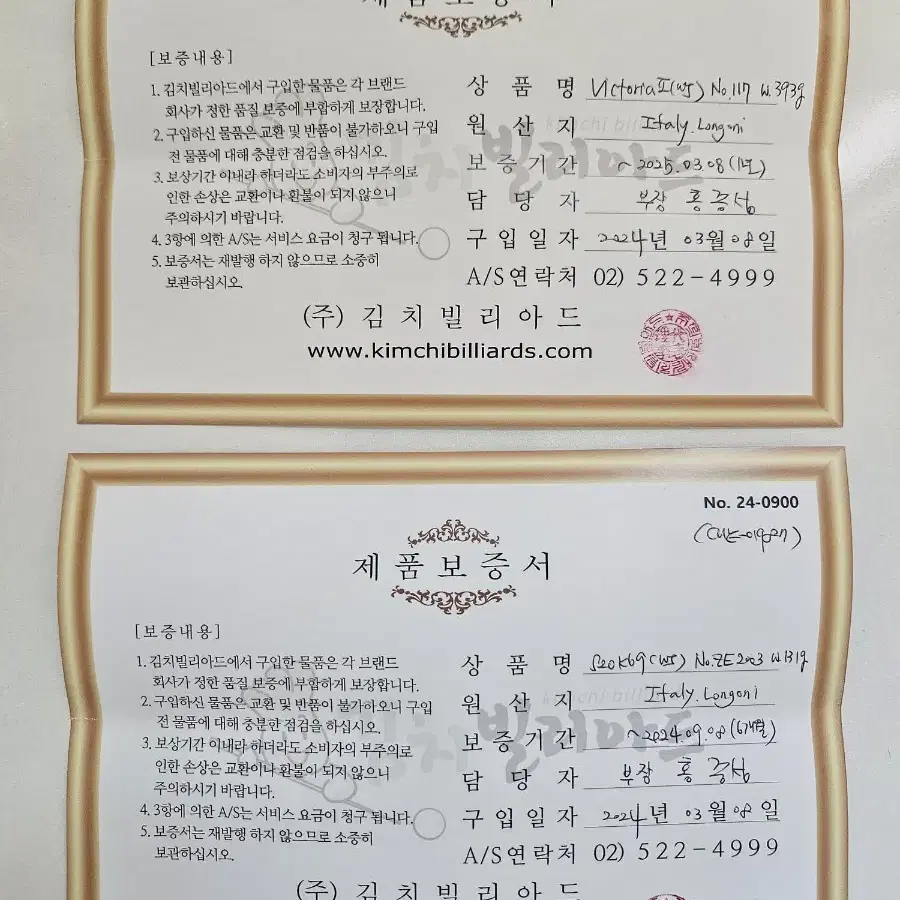 제품보증서
[보증내용]
1. 김치빌리아드에서 구입한 물품은 각 브랜드
회사가 정한 품질 보증에 부합하게 보장합니다.
2. 구입하신 물품은 교환 및 반품이 불가하오니 구입
전 물품에 대해 충분한 점검을 하십시오.
3. 보상기간 이내라 하더라도 소비자의 부주의로
인한 손상은 교환이나 환불이 되지 않으니
주의하시기 바랍니다.
4. 3항에 의한 A/S는 서비스 요금이 청구 됩니다.
5. 보증서는 재발행 하지 않으므로 소중히
보관하십시오.
상품명 Victoria II(WJ) No.117 W.393g
원산지 Italy. Longoni
보증기간 ~ 2025.03.08(1년)
담당자 부장 홍증상
구입일자 2024년 03월 08일
A/S연락처 02) 522-4999
김치빌리아드
(주) 김치빌리아드
www.kimchibilliards.com
No. 24-0900
제품보증서
[보증내용]
1. 김치빌리아드에서 구입한 물품은 각 브랜드
회사가 정한 품질 보증에 부합하게 보장합니다.
2. 구입하신 물품은 교환 및 반품이 불가하오니 구입
전 물품에 대해 충분한 점검을 하십시오.
3. 보상기간 이내라 하더라도 소비자의 부주의로
인한 손상은 교환이나 환불이 되지 않으니
주의하시기 바랍니다.
4. 3항에 의한 A/S는 서비스 요금이 청구 됩니다.
5. 보증서는 재발행 하지 않으므로 소중히
보관하십시오.
상품명 S20 K69(WJ) No.ZE2003 W.131g
원산지 Italy. Longoni
보증기간 ~2024.09.08(6개월)
담당자 부장 홍증상
구입일자 2024년 03월 08일
A/S연락처 02) 522-4999
김치빌리아드
(주) 김치빌리아드